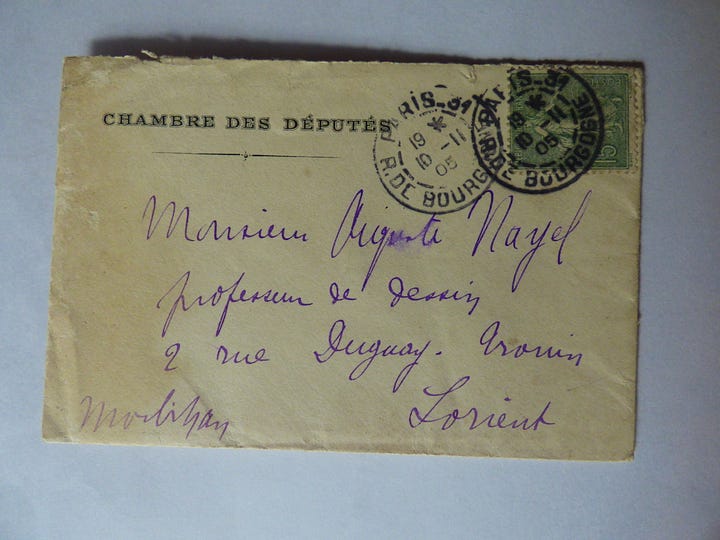 CHAMBRE DES DÉPUTÉS
PARIS_31
19 *
10 -11
05
R. DE BOURGOGNE
PARIS_31
19 *
10 -11
05
R. DE BOURGOGNE
Monsieur Auguste Nayel
professeur de dessin
2 rue Duguay-Trouin
Lorient
Morbihan